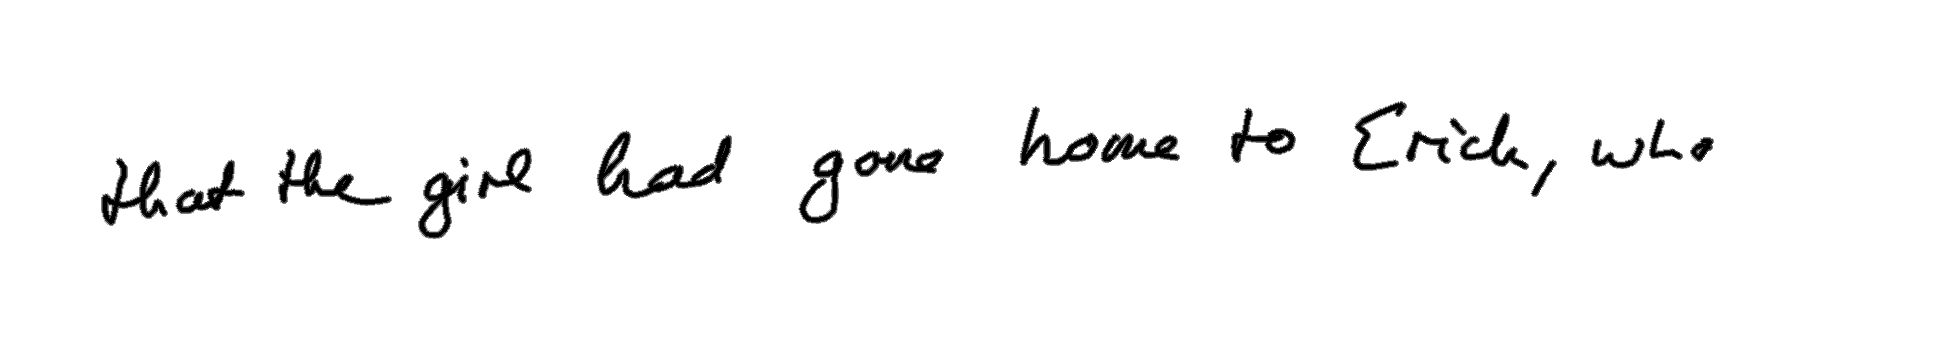 that the girl had gone home to Erick, who